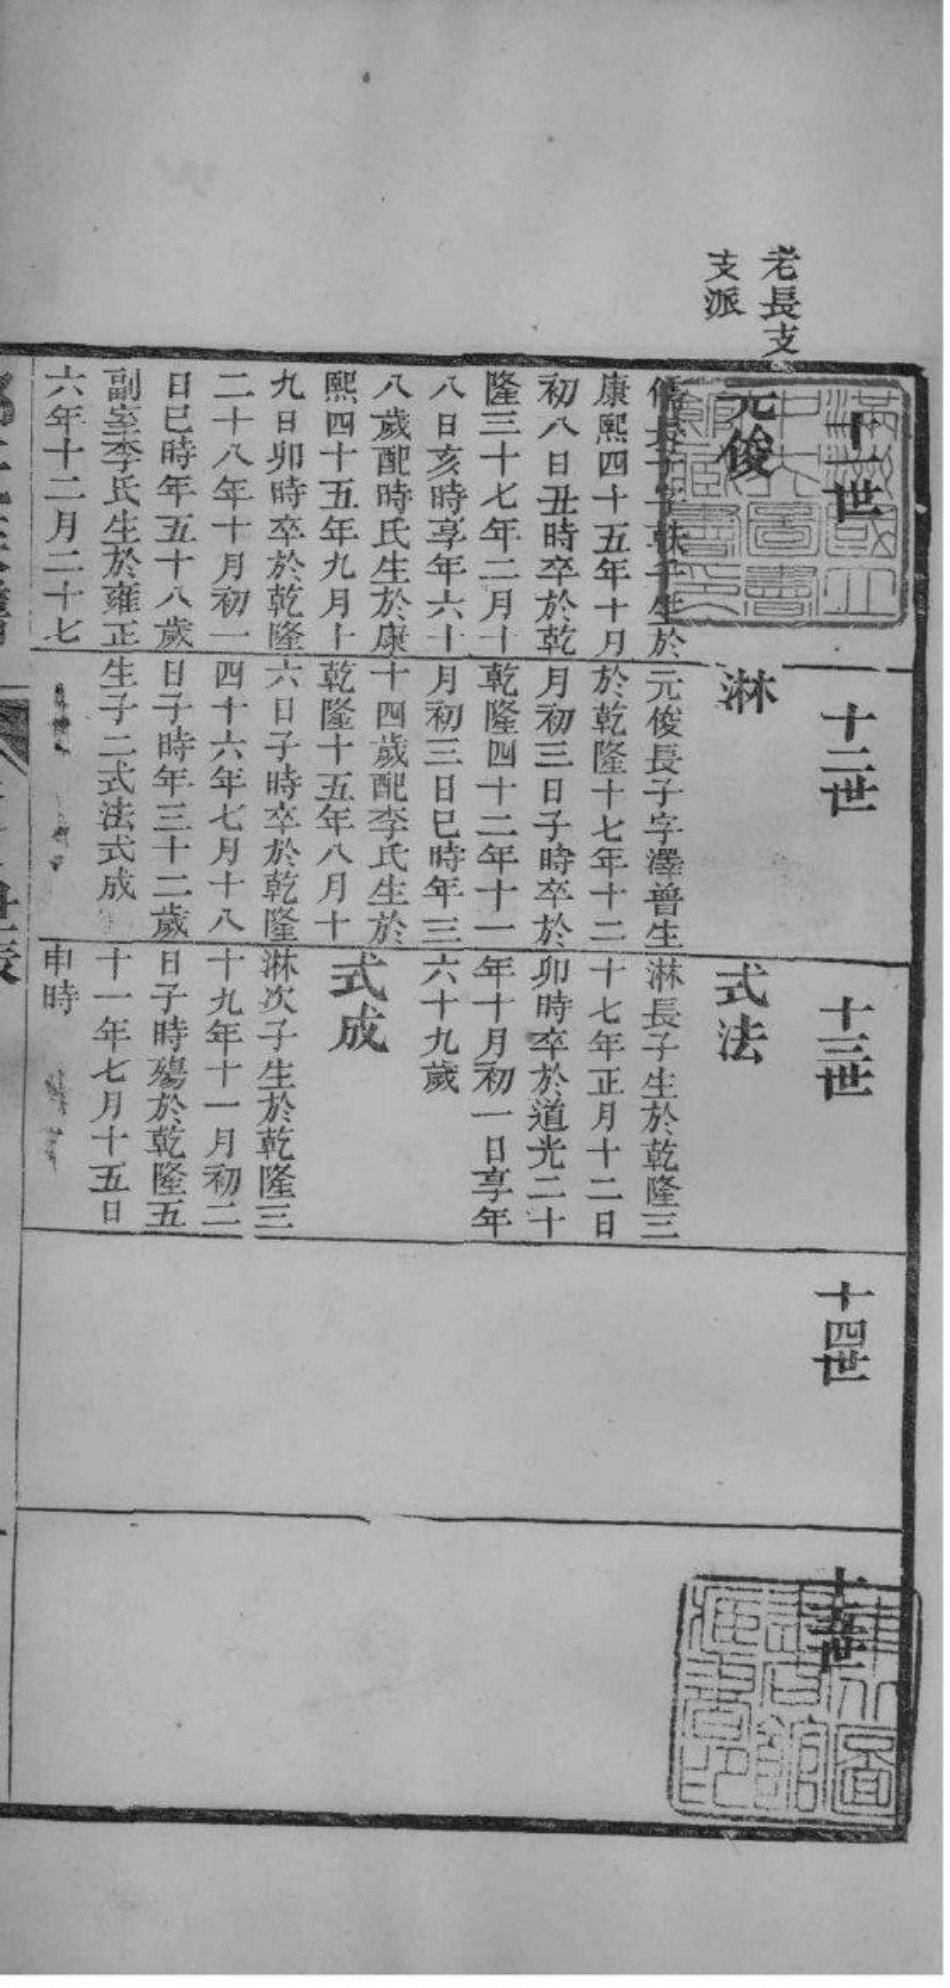 老長支
支派
十一世
元俊
長子字生於
康熙四十五年十月
初八日丑時卒於乾
隆三十七年二月十
八日亥時享年六十
八歲配時氏生於康
熙四十五年九月十
九日卯時卒於乾隆
二十八年十月初一
日巳時年五十八歲
副室李氏生於雍正
六年十二月二十七
十二世
淋
元俊長子字澤普生
於乾隆十七年十二
月初三日子時卒於
乾隆四十二年十一
月初三日巳時年三
十四歲配李氏生於
乾隆十五年八月十
六日子時卒於乾隆
四十六年七月十八
日子時年三十二歲
生子二式法式成
十三世
式法
淋長子生於乾隆三
十七年正月十二日
卯時卒於道光二十
年十月初一日享年
六十九歲
式成
淋次子生於乾隆三
十九年十一月初二
日子時殤於乾隆五
十一年七月十五日
申時
十四世
十五世